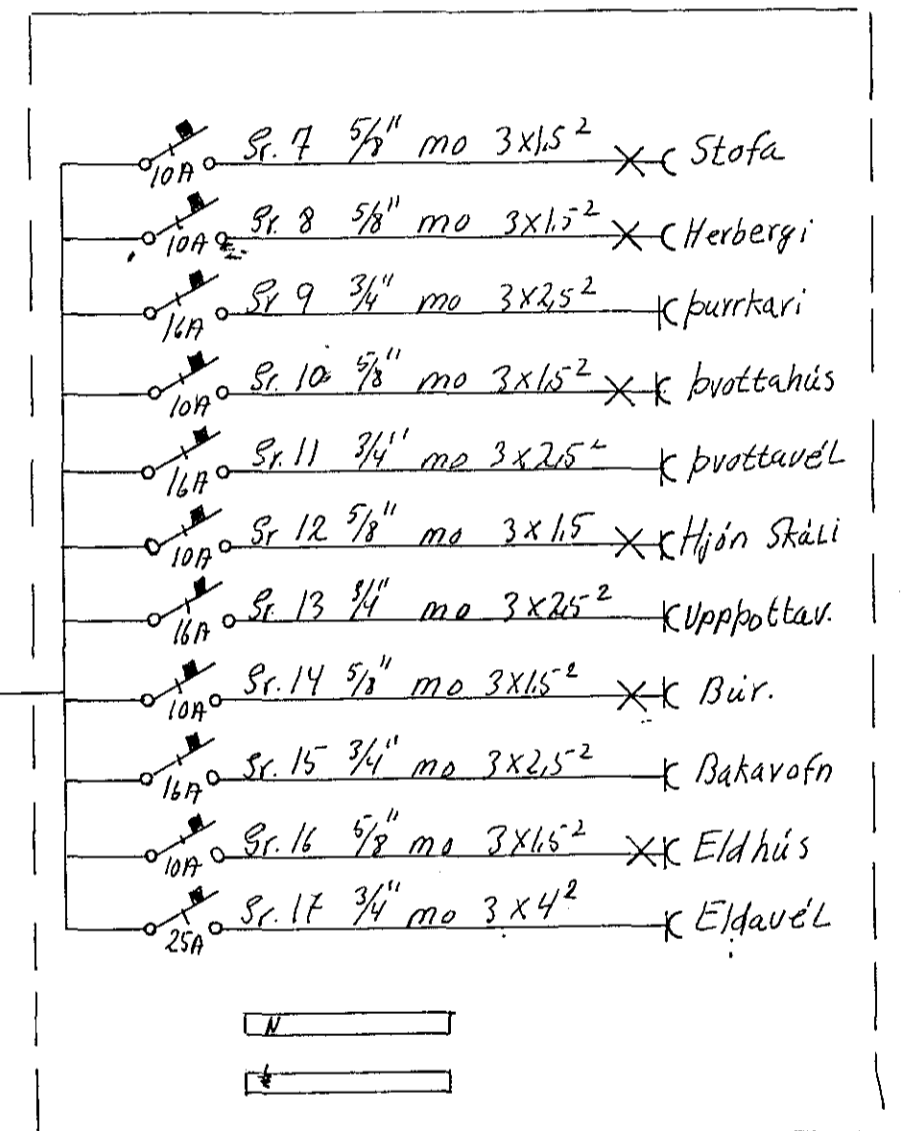 Gr. 7 5/8" mo 3x1,5² Stofa
10A
Gr. 8 5/8" mo 3x1,5² Herbergi
10A
Gr 9 3/4" mo 3x2,5² þurrkari
16A
Gr. 10 5/8" mo 3x1,5² þvottahús
10A
Gr. 11 3/4" mo 3x2,5² þvottavéL
16A
Gr 12 5/8" mo 3x1.5 Hjón SkáLi
10A
Gr. 13 3/4" mo 3x2,5² Uppþottav.
16A
Gr. 14 5/8" mo 3x1.5² Búr.
10A
Gr. 15 3/4" mo 3x2,5² Bakarofn
16A
Gr. 16 5/8" mo 3x1,5² Eldhús
10A
Gr. 17 3/4" mo 3x4² EldavéL
25A
N